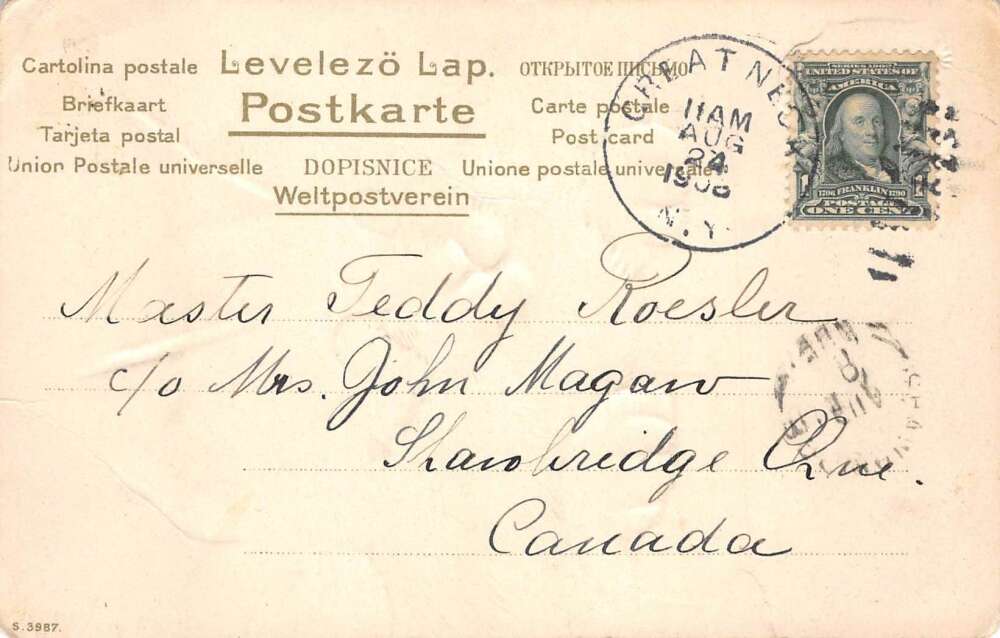 Cartolina postale Levelezö Lap. ОТКРЫТОЕ ПИСЬМО
Briefkaart Postkarte Carte postale
Tarjeta postal Post card
Union Postale universelle DOPISNICE Unione postale universale
Weltpostverein
GREAT NECK
11AM
AUG
24
1908
N.Y.
SERIES 1902
UNITED STATES OF
AMERICA
1706 FRANKLIN 1790
1 POSTAGE 1
ONE CENT
Master Teddy Roesler
c/o Mrs. John Magaw
Shawbridge Que.
Canada
S. 3987.